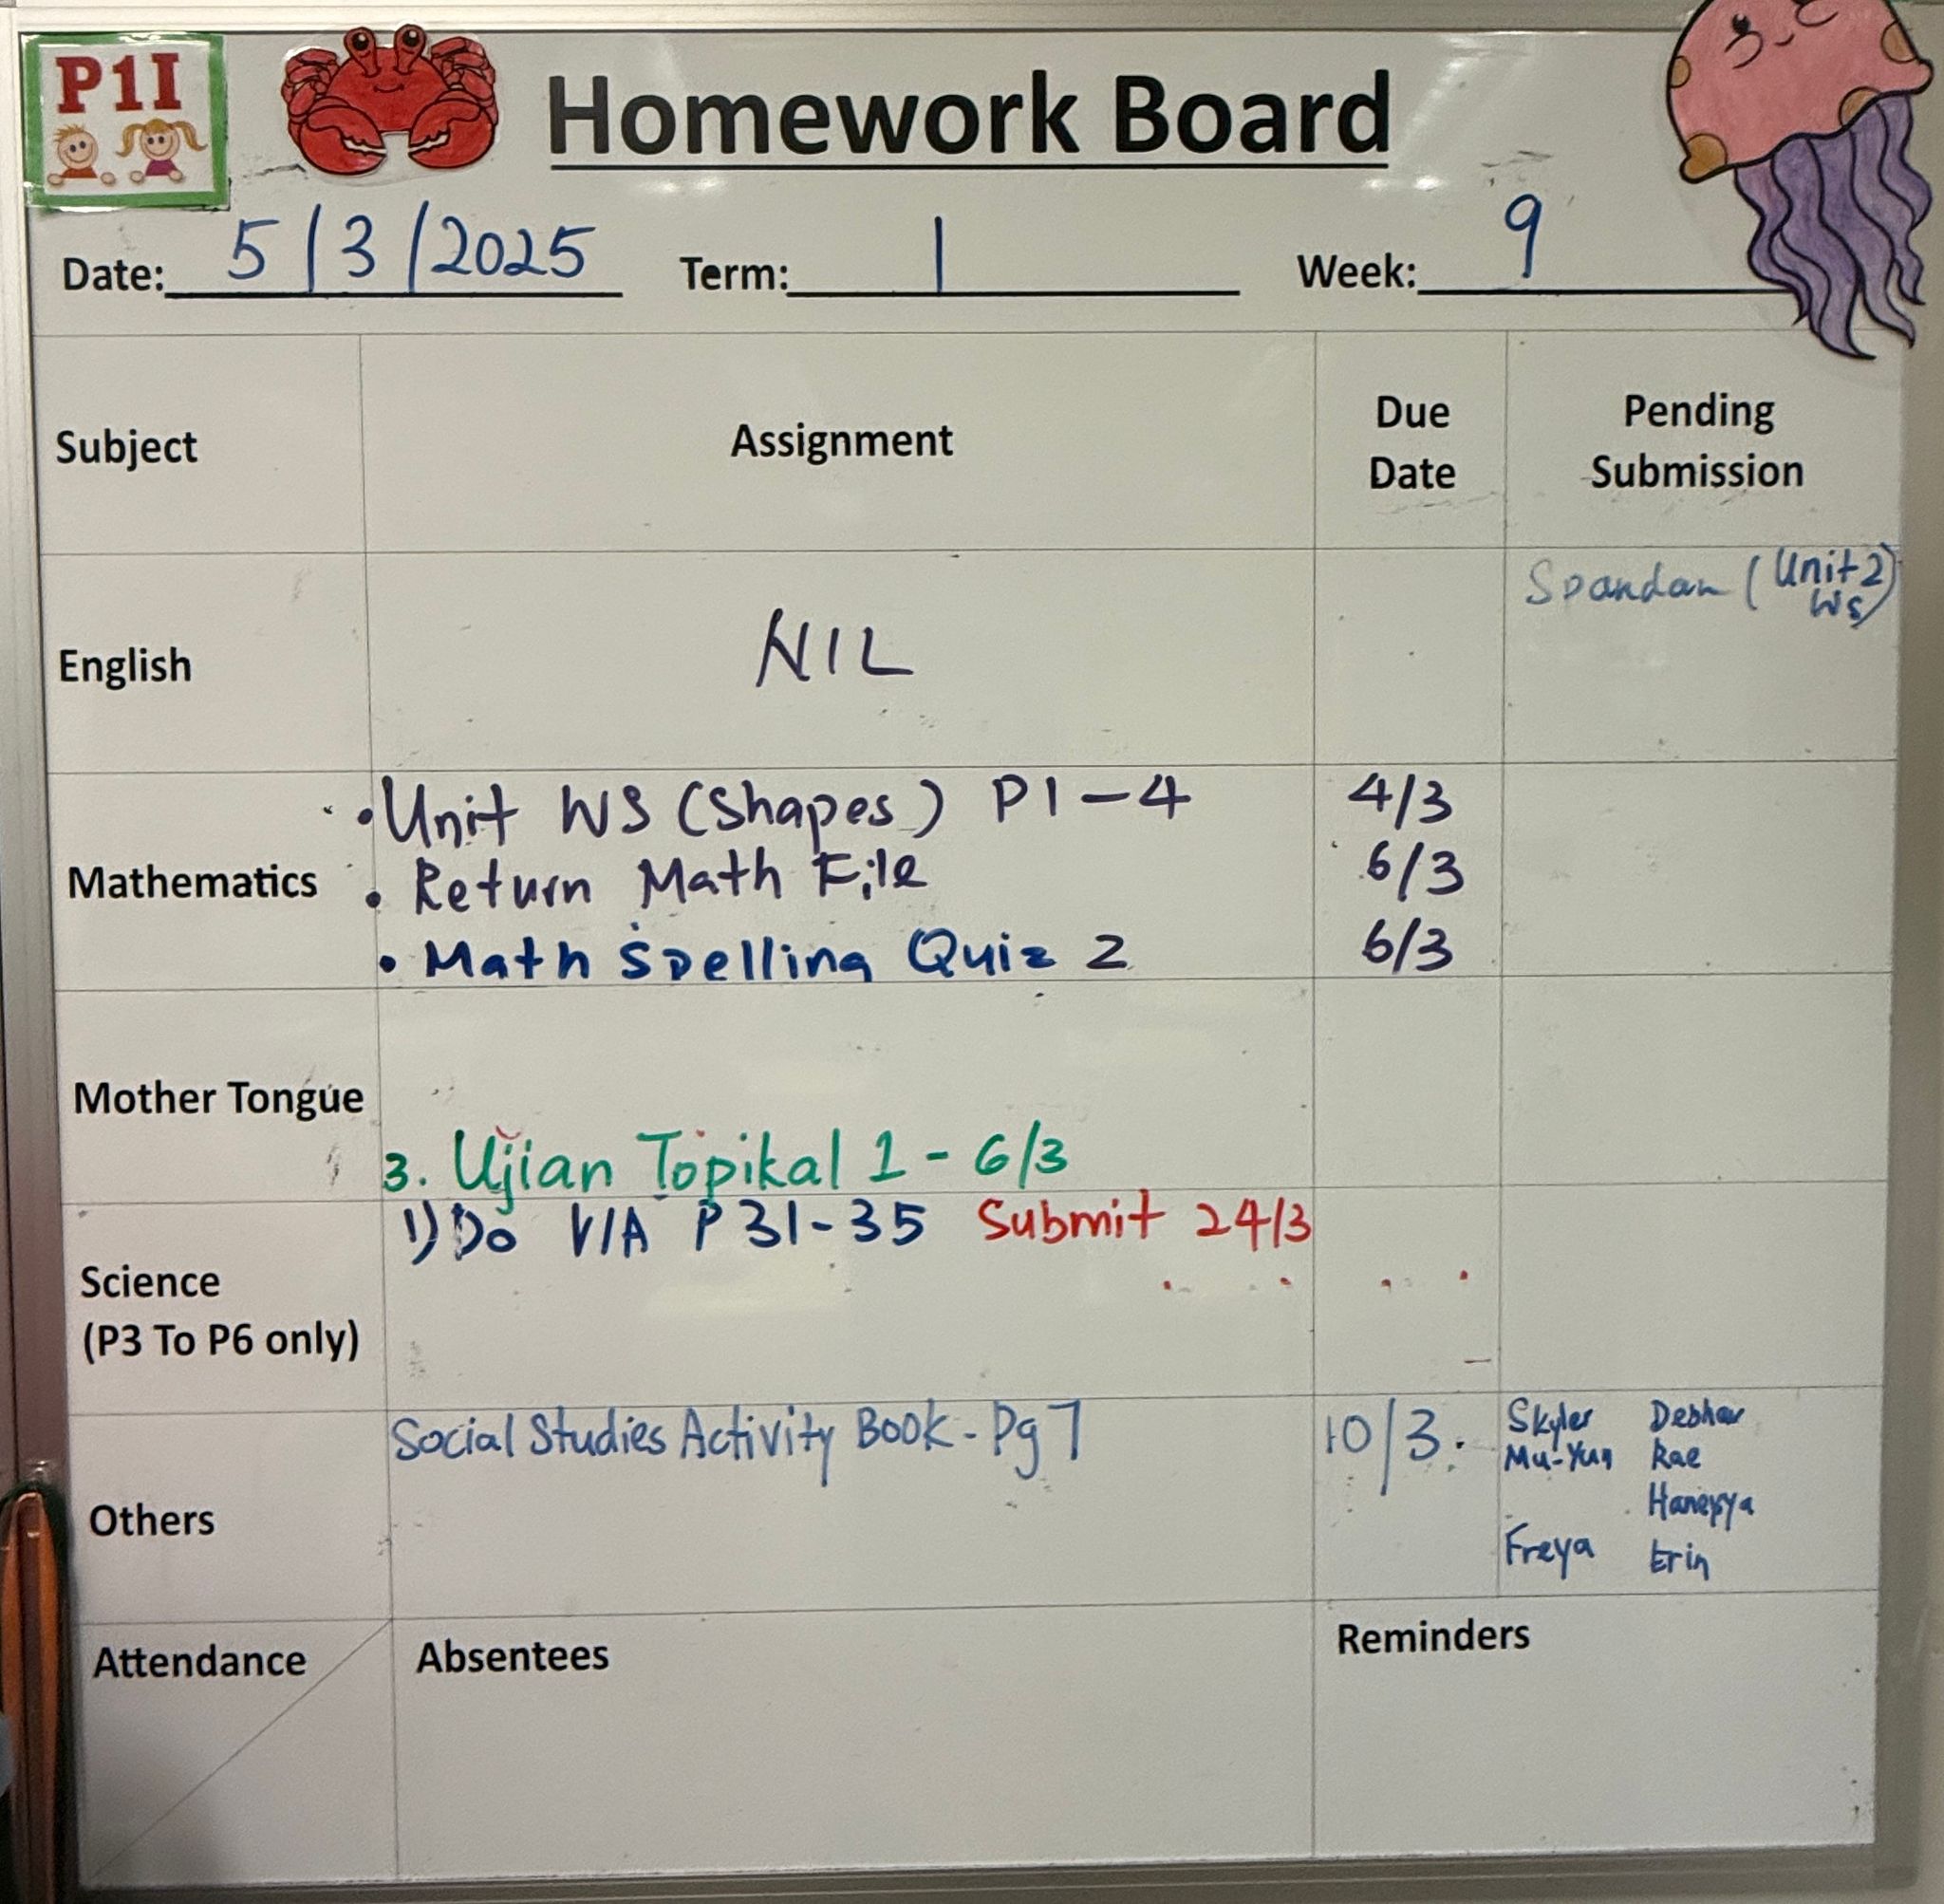 P1I
Homework Board
Date: 5/3/2025 Term: 1 Week: 9
Subject Assignment Due Date Pending Submission
English NIL Spandan (Unit 2 WS)
Mathematics
• Unit WS (Shapes) P1-4 4/3
• Return Math File 6/3
• Math Spelling Quiz 2 6/3
Mother Tongue
3. Ujian Topikal 1 - 6/3
1) Do V/A P 31-35 Submit 24/3
Science
(P3 To P6 only)
Social Studies Activity Book - Pg 7 10/3. Skyler
Mu-Yun Rae
Others
Freya Erin
Attendance Absentees Reminders